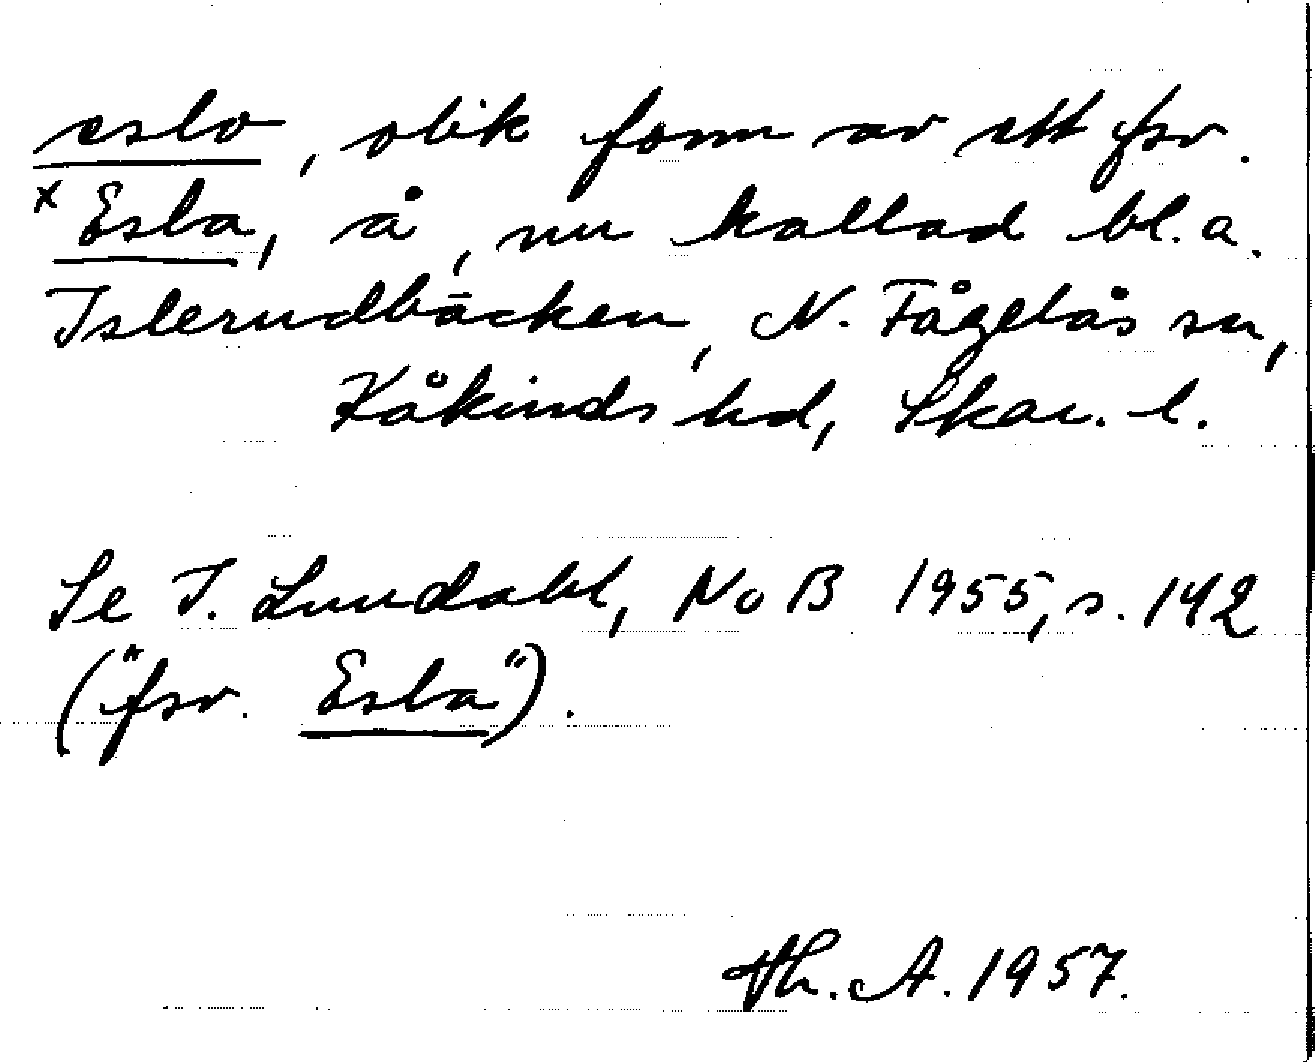 eslo, olik form av ett fsv.
x Esla, å, nu kallad bl.a.
Islerudbäcken, N. Fågelås sn,
Kåkinds hd, Skar. l.
Se I. Lundahl, NoB 1955, s. 142
("fsv. Esla").
Th. A. 1957.